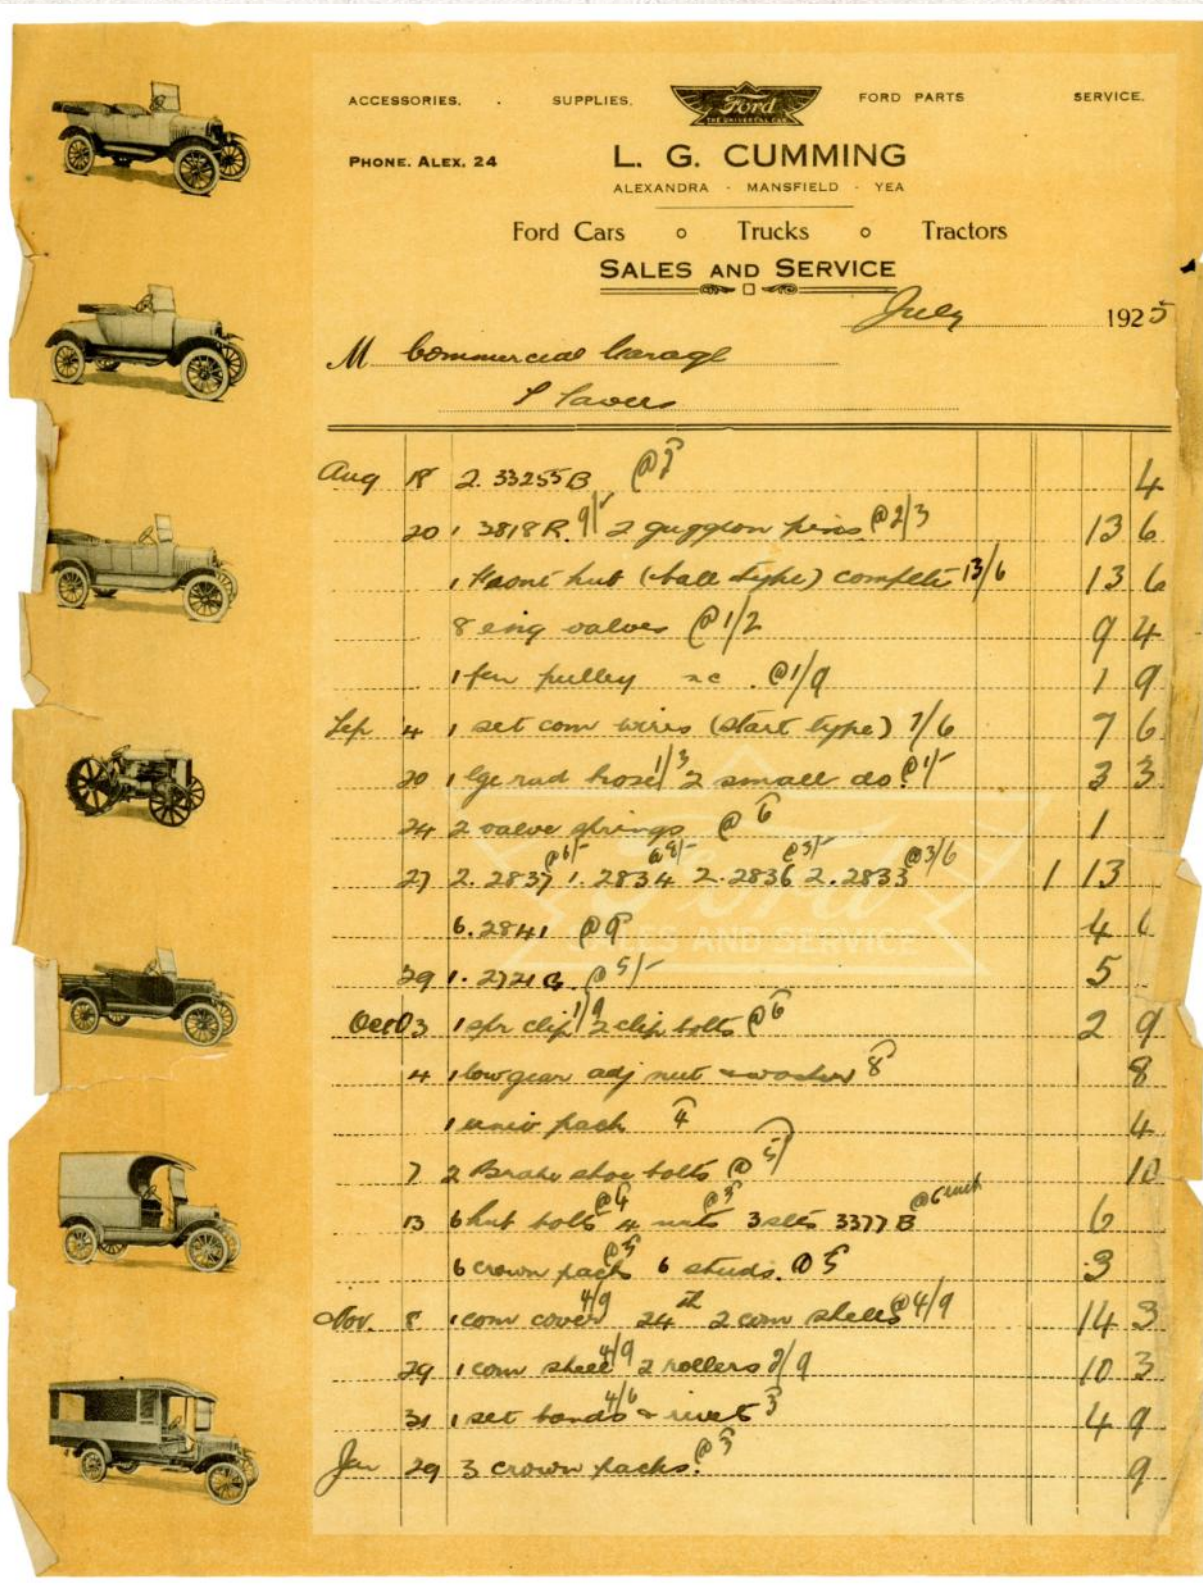 ACCESSORIES. . SUPPLIES. Ford FORD PARTS SERVICE.
THE UNIVERSAL CAR
PHONE. ALEX. 24 L. G. CUMMING
ALEXANDRA - MANSFIELD - YEA
Ford Cars o Trucks o Tractors
SALES AND SERVICE
July 1925
M Commercial Garage
Aug 18 2. 33255B @ 2 4
20 1 3818R. 9/- 2 guggeon pins @ 2/3 13 6
1 Front hub (ball type) complete 13/6 13 6
8 eng valves @ 1/2 9 4
1 fan pulley nc . @ 1/9 1 9
Sep 4 1 set com wires (start type) 7/6 7 6
20 1 lge rad hose 1/3 2 small do. @ 1/- 3 3
24 2 valve springs @ 6 1
27 2. 2837 @ 6/- 1. 2834 @ 8/- 2. 2836 2. 2833 @ 3/6 1 13
6. 2841 @ 9 4 6
Ford
SALES AND SERVICE
29 1. @ 5/- 5
Oct 03 1 spr clip 1/9 2 clip bolts @ 6 2 9
4 1 low gear adj nut & washer 8 8
1 univ pack 4 4
7 2 Brake shoe bolts @ 5 10
13 6 hub bolts @ 4 nuts @ 3 3 sets 3377B @ 6 each 6
6 crown packs 6 studs. @ 5 3
Nov. 8 1 com cover 4/9 24th 2 com shells @ 4/9 14 3
29 1 com shell 4/9 2 rollers 2/9 10 3
31 1 set bands 4/6 & rivets 3 4 9
Jan 29 3 crown packs. @ 3 9